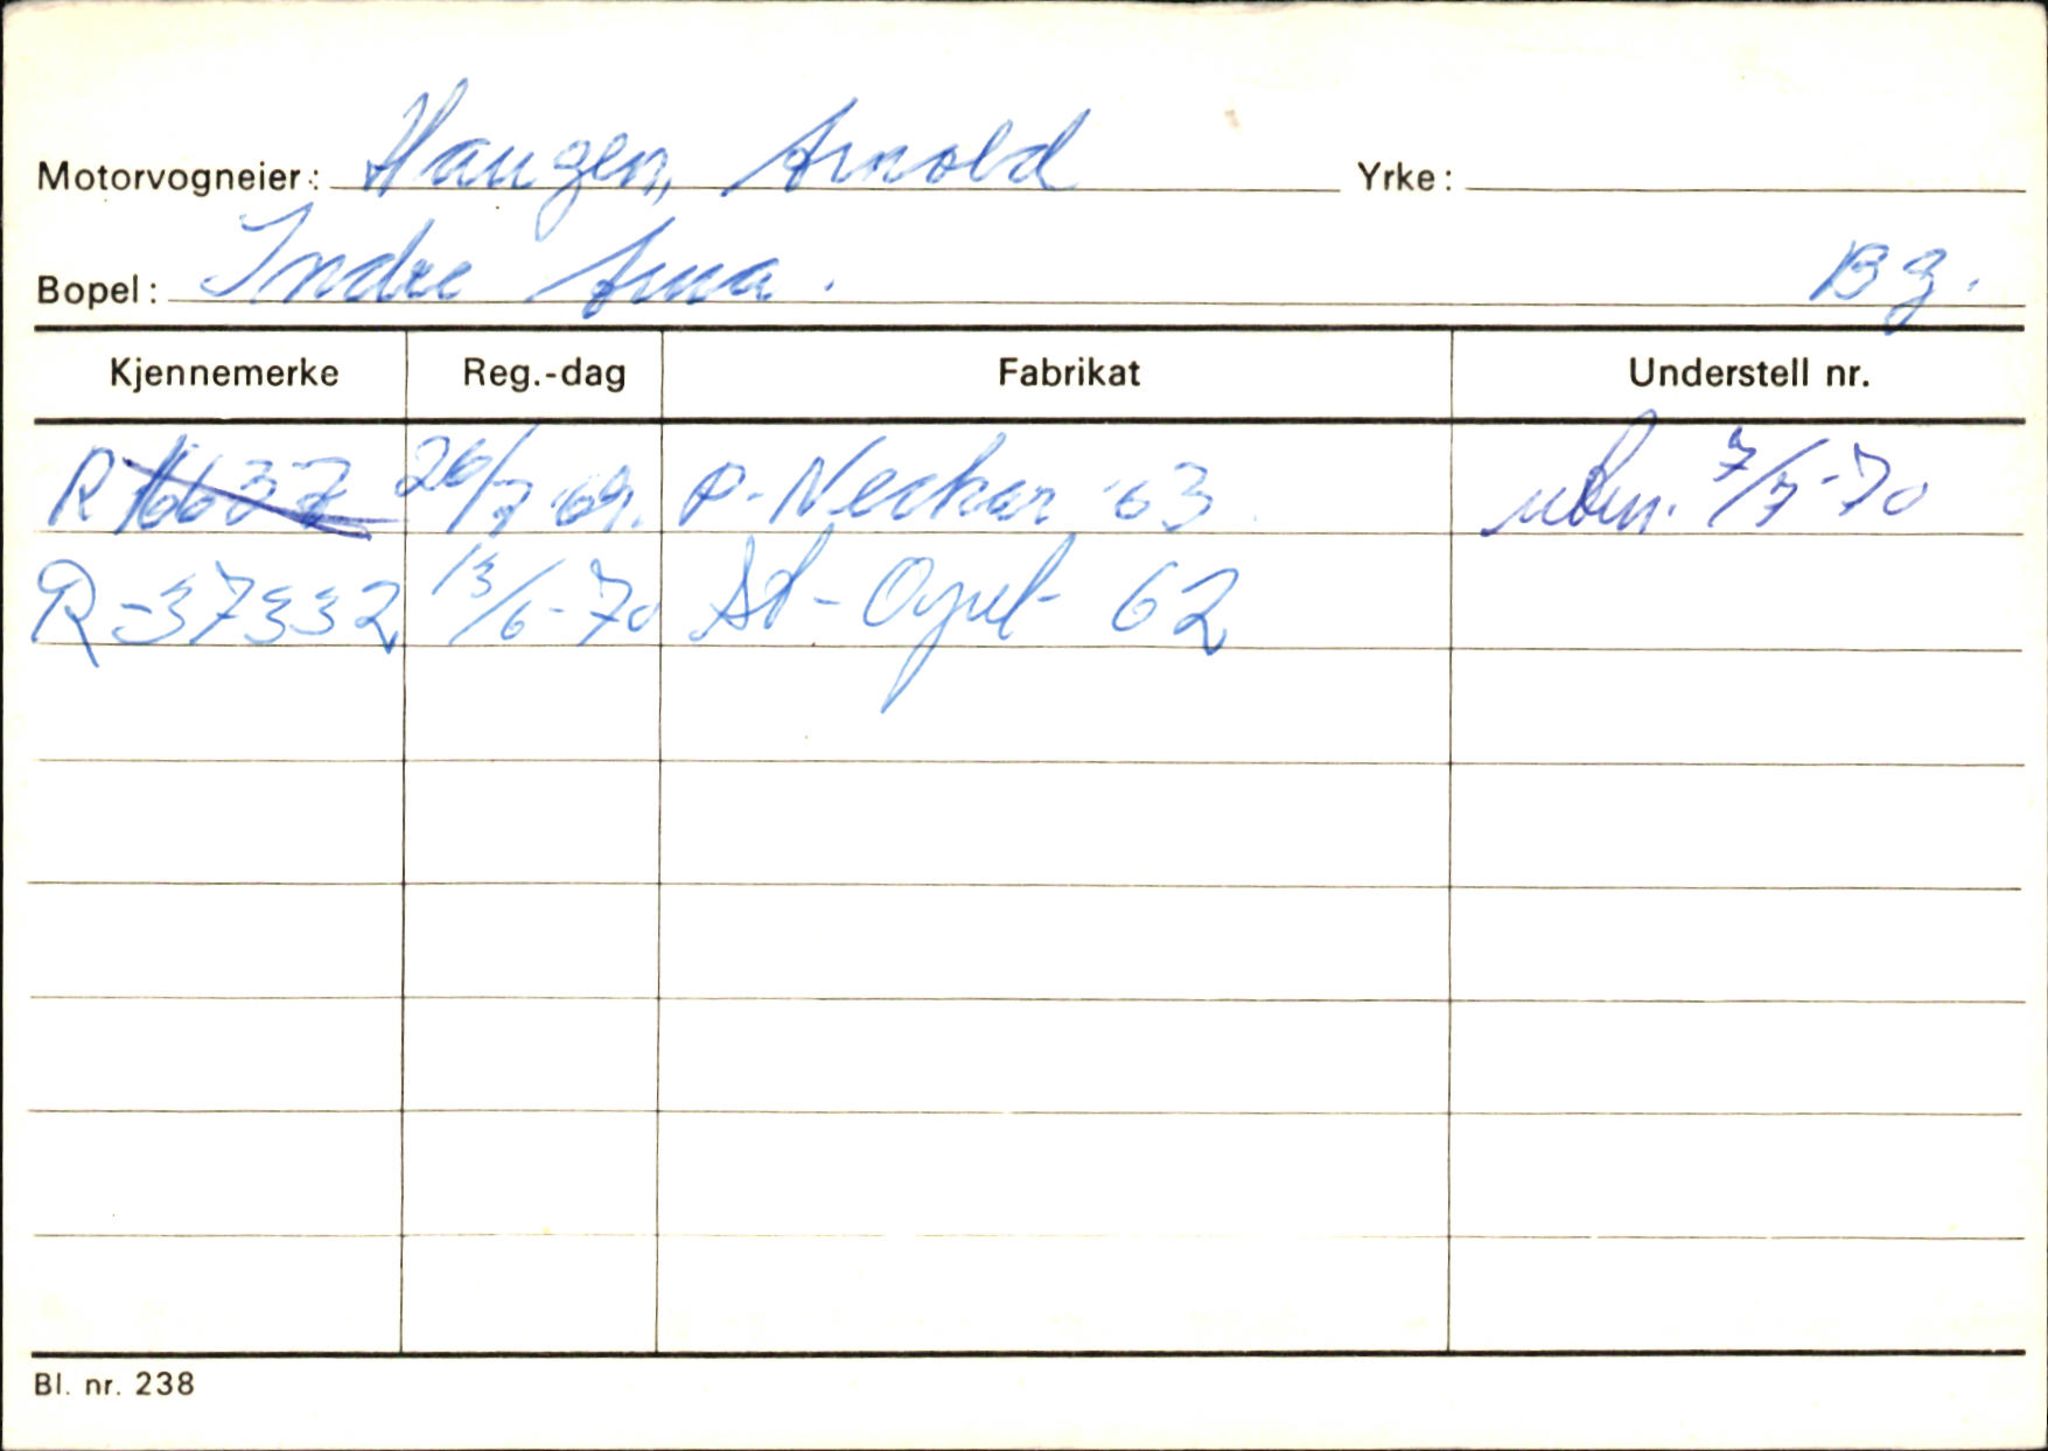 Motorvogneier: Haugen, Arnold Yrke:
Bopel: Indre Arna. Bg.
Kjennemerke Reg.-dag Fabrikat Understell nr.
R 16637 26/7-69. P-Neckar 63 7/7-70
R-37332 13/6-70 St-Opel- 62
Bl. nr. 238